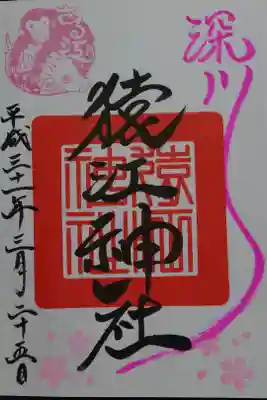 深川
猿江神社
平成三十一年三月二十五日
猿江
神社